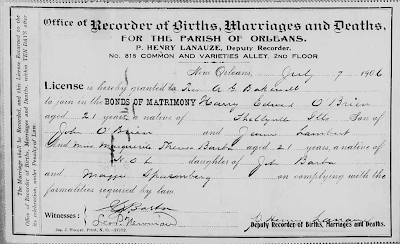 Office of Recorder of Births, Marriages and Deaths,
FOR THE PARISH OF ORLEANS.
P. HENRY LANAUZE, Deputy Recorder.
No. 815 COMMON AND VARIETIES ALLEY, 2ND FLOOR.
New Orleans, July 7 1906
License is hereby granted to Rev. A G Bakewell
to join in the BONDS OF MATRIMONY Harry Edward O'Brien
aged 21 years, a native of Shelbyville Ills Son of
John O'Brien and Jennie Lambert
and Miss Marguerite Theresa Barton aged 21, a native of
N.O.L daughter of John Barton
and Maggie on complying with the
formalities required by law.
Witnesses: Barton
Geo. P. Newman
Deputy Recorder of Births, Marriages and Deaths.
The Marriage shall be Recorded, and this License Returned to the
Office of Recorder of Births, Marriages and Deaths, within TEN DAYS after
its celebration, under Penalty of Law.